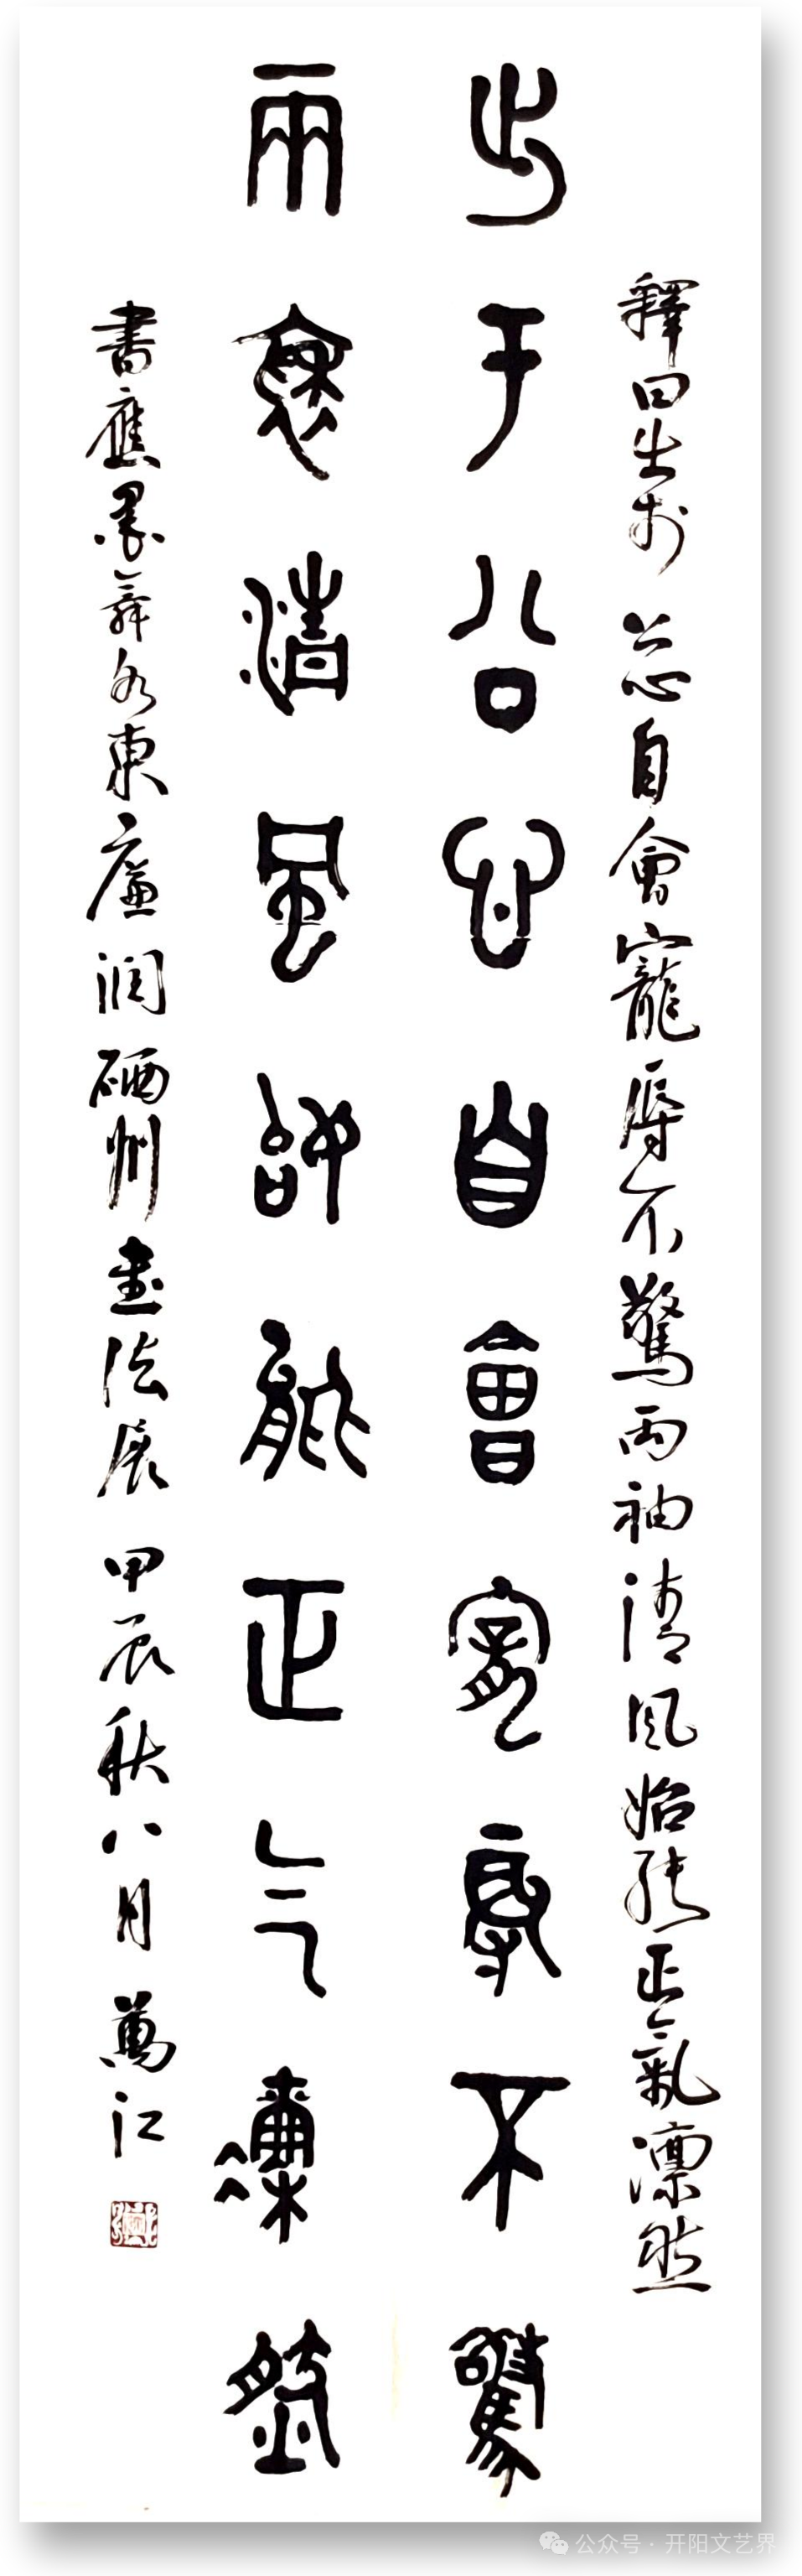 釋曰出於公心自會寵辱不驚兩袖清風始能正氣凛然
出于公心自會寵辱不驚
兩袖清風始能正气凛然
書應墨舞水東廉润硒州書法展甲辰秋八月萬江
公众号·开阳文艺界